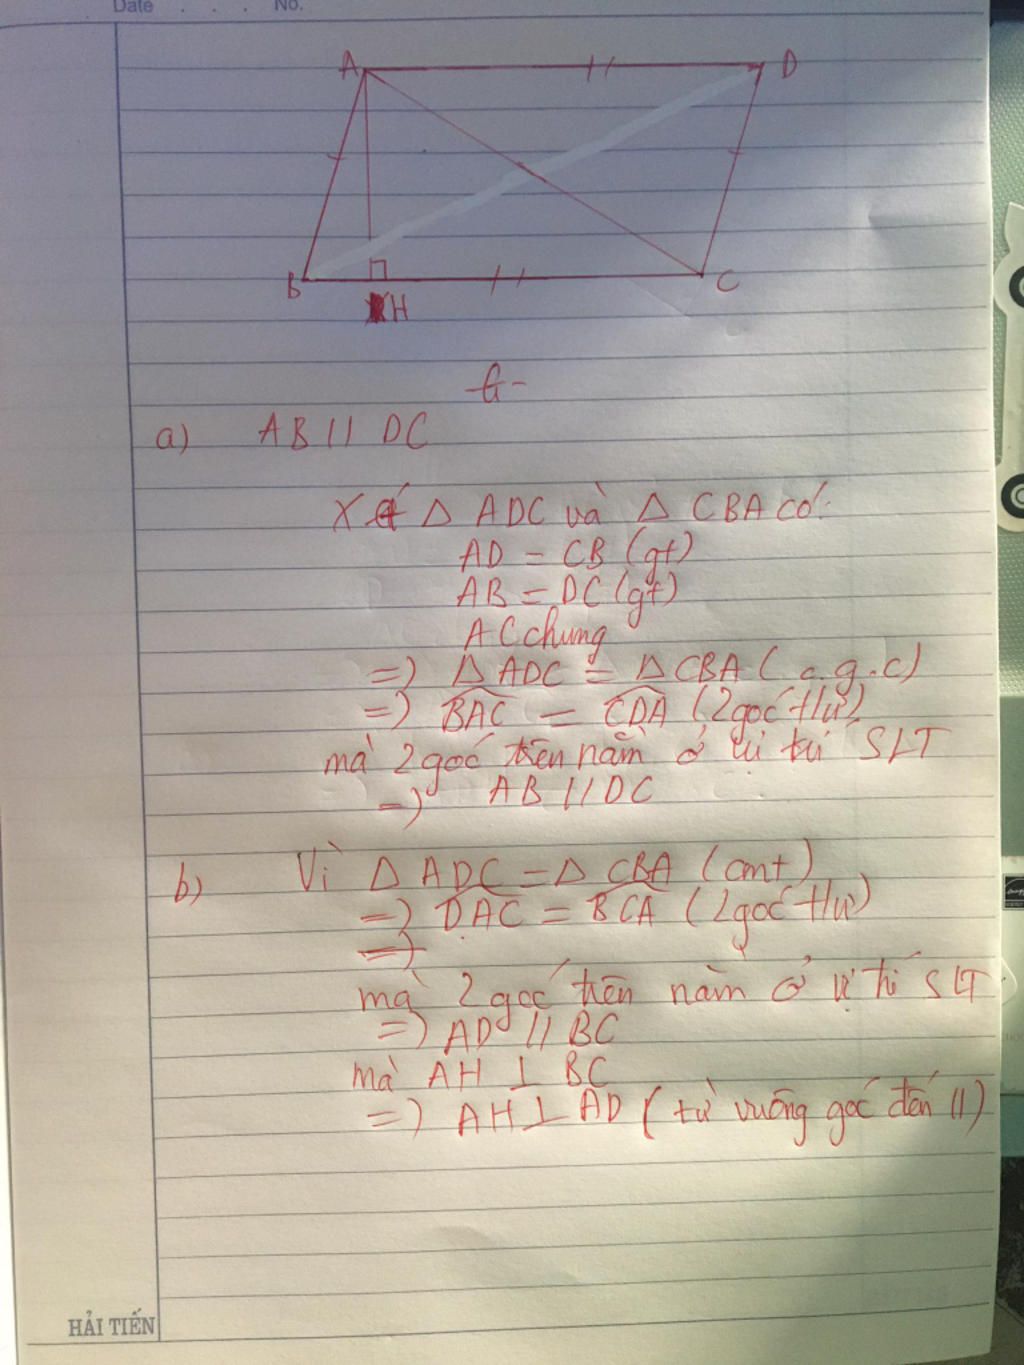 Date . . . No.
A D
B H C
-G-
a) AB // DC
Xét Δ ADC và Δ CBA có:
AD = CB (gt)
AB = DC (gt)
AC chung
=) Δ ADC = Δ CBA ( c.g.c)
=) BAC = CDA (2góc tlư)
mà 2 góc trên nằm ở vị trí SLT
=) AB // DC
b) Vì Δ ADC = Δ CBA (cmt)
=) DAC = BCA (2góc tlư)
=)
mà 2 góc trên nằm ở vị trí SLT
=) AD // BC
mà AH ⊥ BC
=) AH ⊥ AD ( từ vuông góc đến //)
HẢI TIẾN